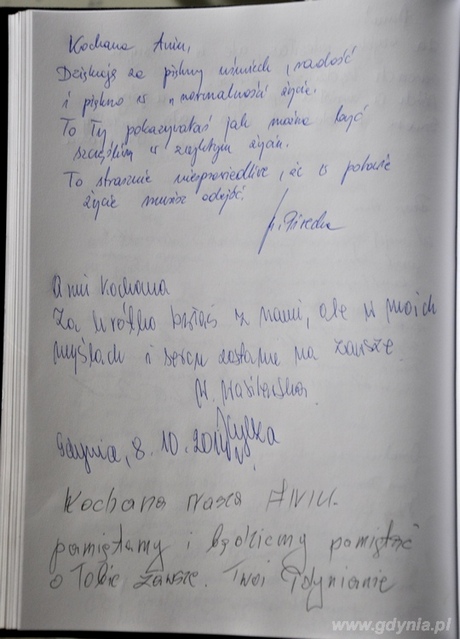 Kochana Aniu,
Dziękuję za piękny uśmiech, radość
i piękno w „normalności życia.
To Ty pokazywałaś jak można być
szczęśliwym w zwykłym życiu.
To strasznie niesprawiedliwe, że w połowie
życie musisz odejść.
Aniu Kochana
Za krótko byłaś z nami, ale w moich
myślach i sercu zostanie na zawsze
Gdynia, 8.10.
Kochana nasza Aniu.
pamiętamy i będziemy pamiętać
o Tobie zawsze. Twoi Gdynianie
www.gdynia.pl